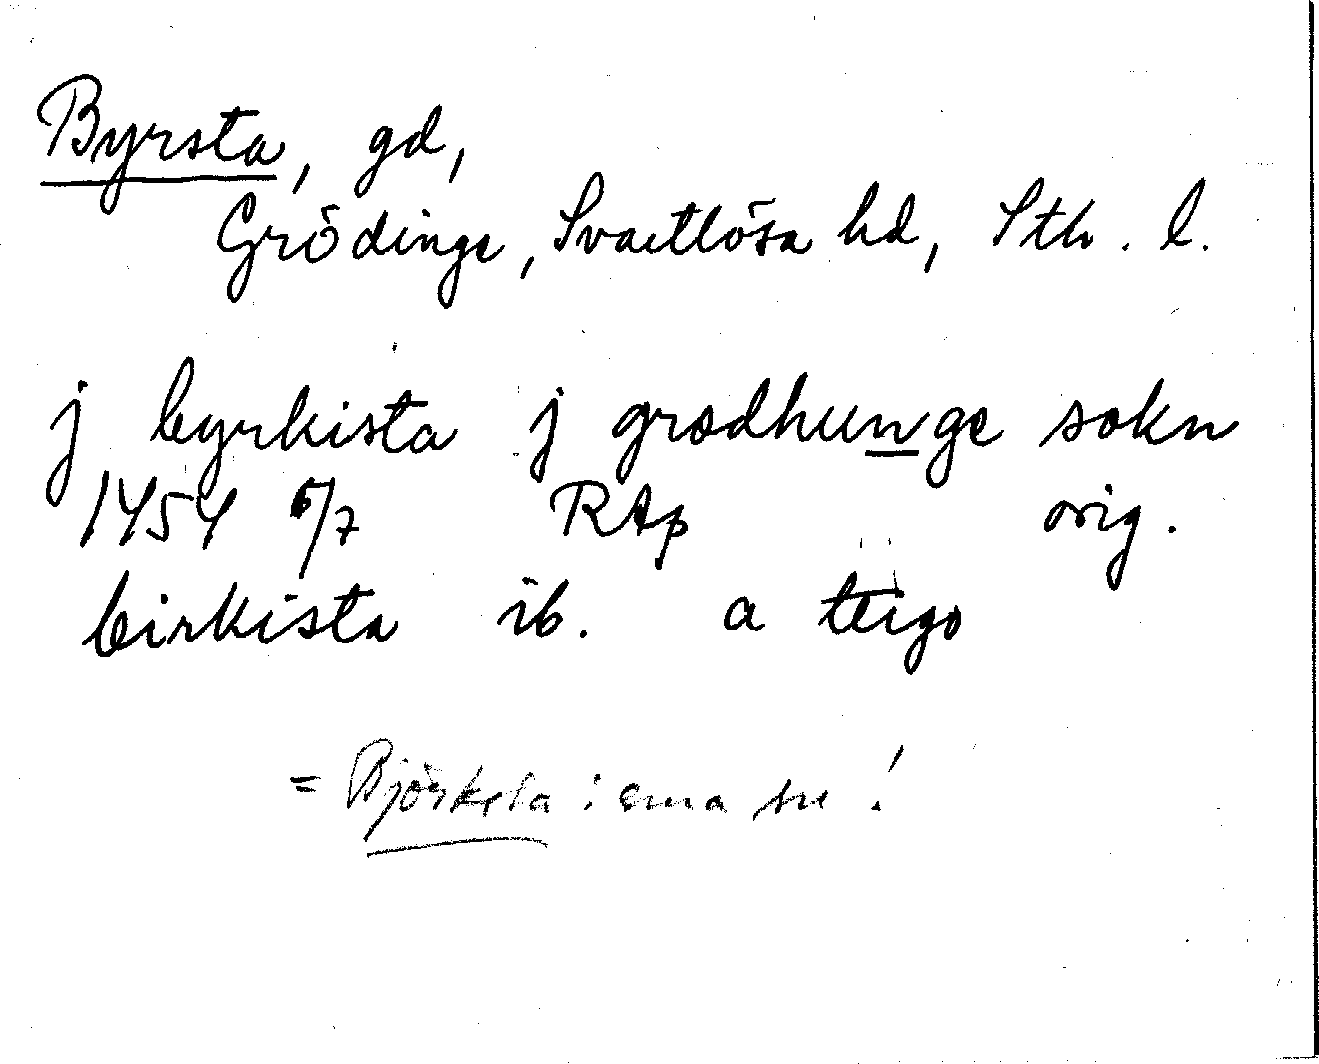 Byrsta, gd,
Grödinge, Svartlösa hd, Sth. l.
j byrkista j grødhunge sokn
1454 6/7 RAp orig.
birkista ib. a tergo
= Björksta i sma sn!